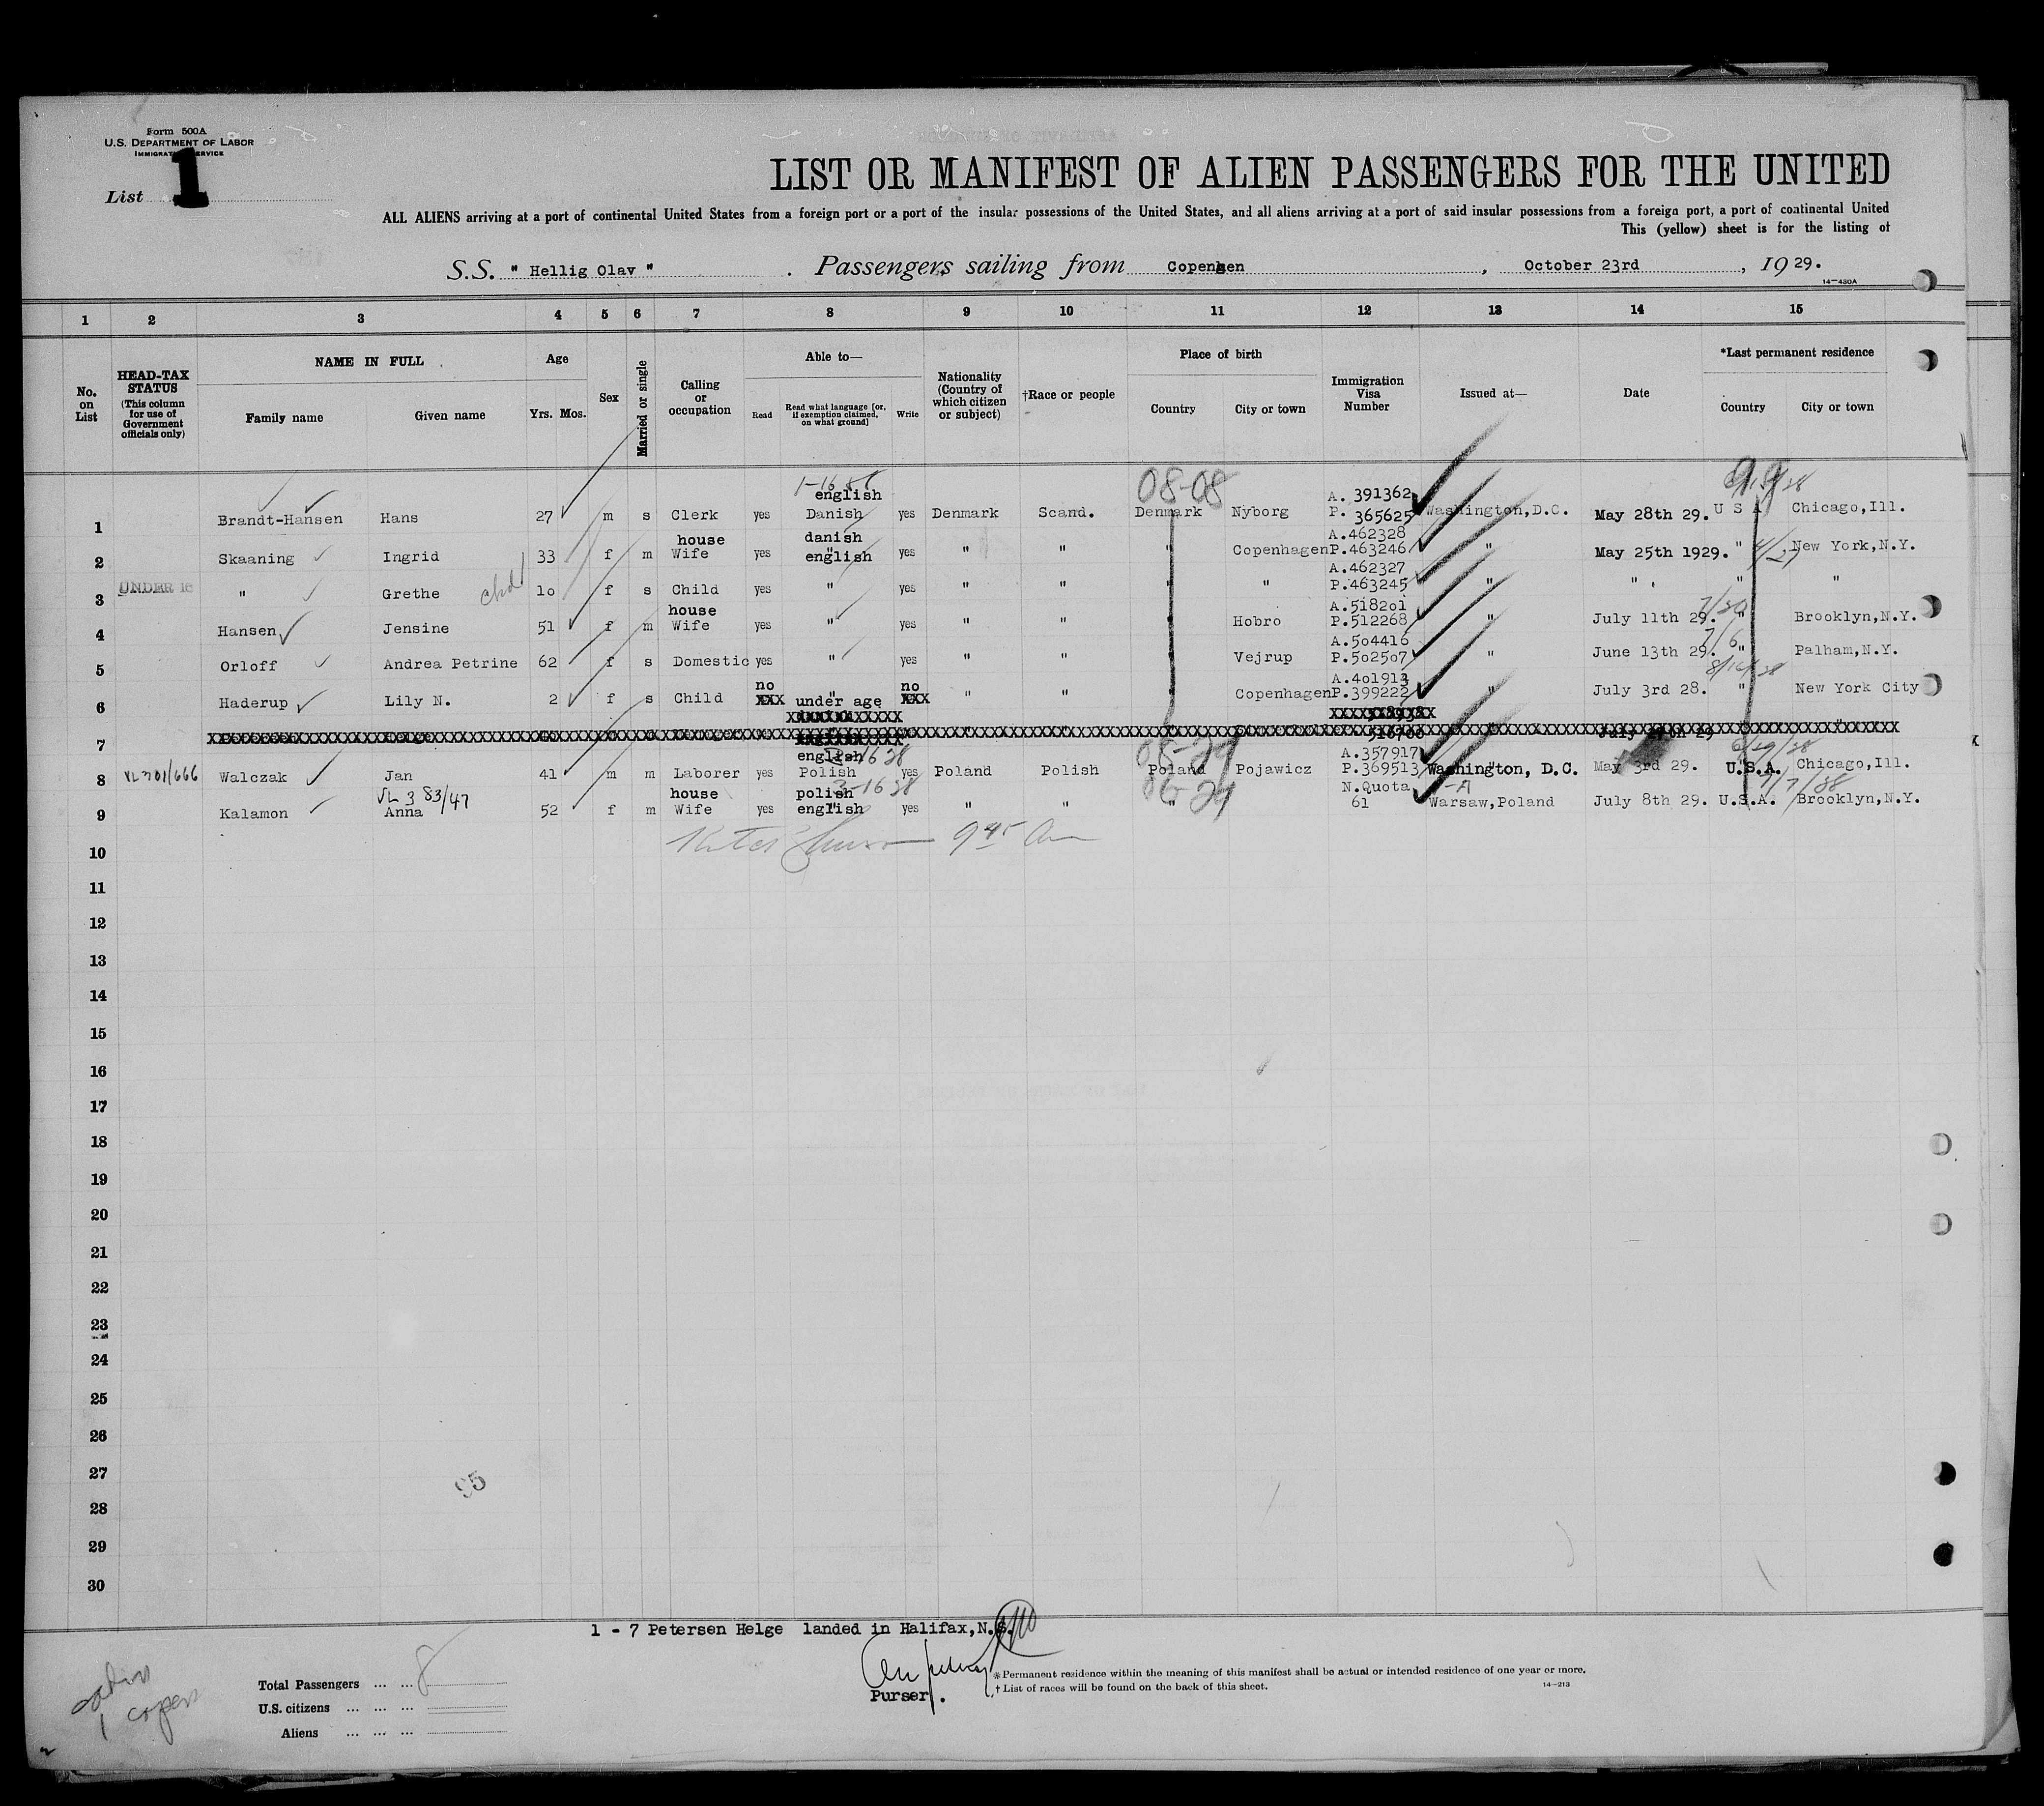 Form 500A
U.S. DEPARTMENT OF LABOR
IMMIGRATION SERVICE
List 1
LIST OR MANIFEST OF ALIEN PASSENGERS FOR THE UNITED
ALL ALIENS arriving at a port of continental United States from a foreign port or a port of the insular possessions of the United States, and all aliens arriving at a port of said insular possessions from a foreign port, a port of continental United
This (yellow) sheet is for the listing of
S.S. " Hellig Olav " . Passengers sailing from Copenhen , October 23rd , 19 29.
14-430A
1 2 3 4 5 6 7 8 9 10 11 12 13 14 15
No. on List
HEAD-TAX STATUS (This column for use of Government officials only)
NAME IN FULL
Family name Given name
Age
Yrs. Mos.
Sex
Married or single
Calling or occupation
Able to—
Read Read what language [or, if exemption claimed, on what ground] Write
Nationality (Country of which citizen or subject)
†Race or people
Place of birth
Country City or town
Immigration Visa Number
Issued at—
Date
*Last permanent residence
Country City or town
08-08
english A. 391362
1 Brandt-Hansen Hans 27 m s Clerk yes Danish yes Denmark Scand. Denmark Nyborg P. 365625 Washington,D.C. May 28th 29. U S A Chicago,Ill.
house danish A.462328
2 Skaaning Ingrid 33 f m Wife yes english yes " " " Copenhagen P.463246 " May 25th 1929. " New York,N.Y.
A.462327
3 UNDER 16 " Grethe chd 10 f s Child yes " yes " " " " P.463245 " " " " "
house A.518201
4 Hansen Jensine 51 f m Wife yes " yes " " " Hobro P.512268 " July 11th 29. " Brooklyn,N.Y.
A.504416 7/6
5 Orloff Andrea Petrine 62 f s Domestic yes " yes " " " Vejrup P.502507 " June 13th 29. " Palham,N.Y.
no no A.401913
6 Haderup Lily N. 2 f s Child XXX under age XXX " " Copenhagen P.399222 " July 3rd 28. " New York City
7
english 08-29 A.357917 6/29/28
8 Walczak Jan 41 m m Laborer yes Polish yes Poland Polish Poland Pojawicz P.369513 Washington, D.C. May 3rd 29. U.S.A. Chicago,Ill.
house polish N.Quota
9 Kalamon Anna 52 f m Wife yes english yes " " " 61 Warsaw,Poland July 8th 29. U.S.A. Brooklyn,N.Y.
10
11
12
13
14
15
16
17
18
19
20
21
22
23
24
25
26
27
95
28
29
30
1 - 7 Petersen Helge landed in Halifax,N.S.
Purser .
Total Passengers ... ... 8
U.S. citizens ... ... ...
Aliens ... ... ...
*Permanent residence within the meaning of this manifest shall be actual or intended residence of one year or more.
† List of races will be found on the back of this sheet.
14-213